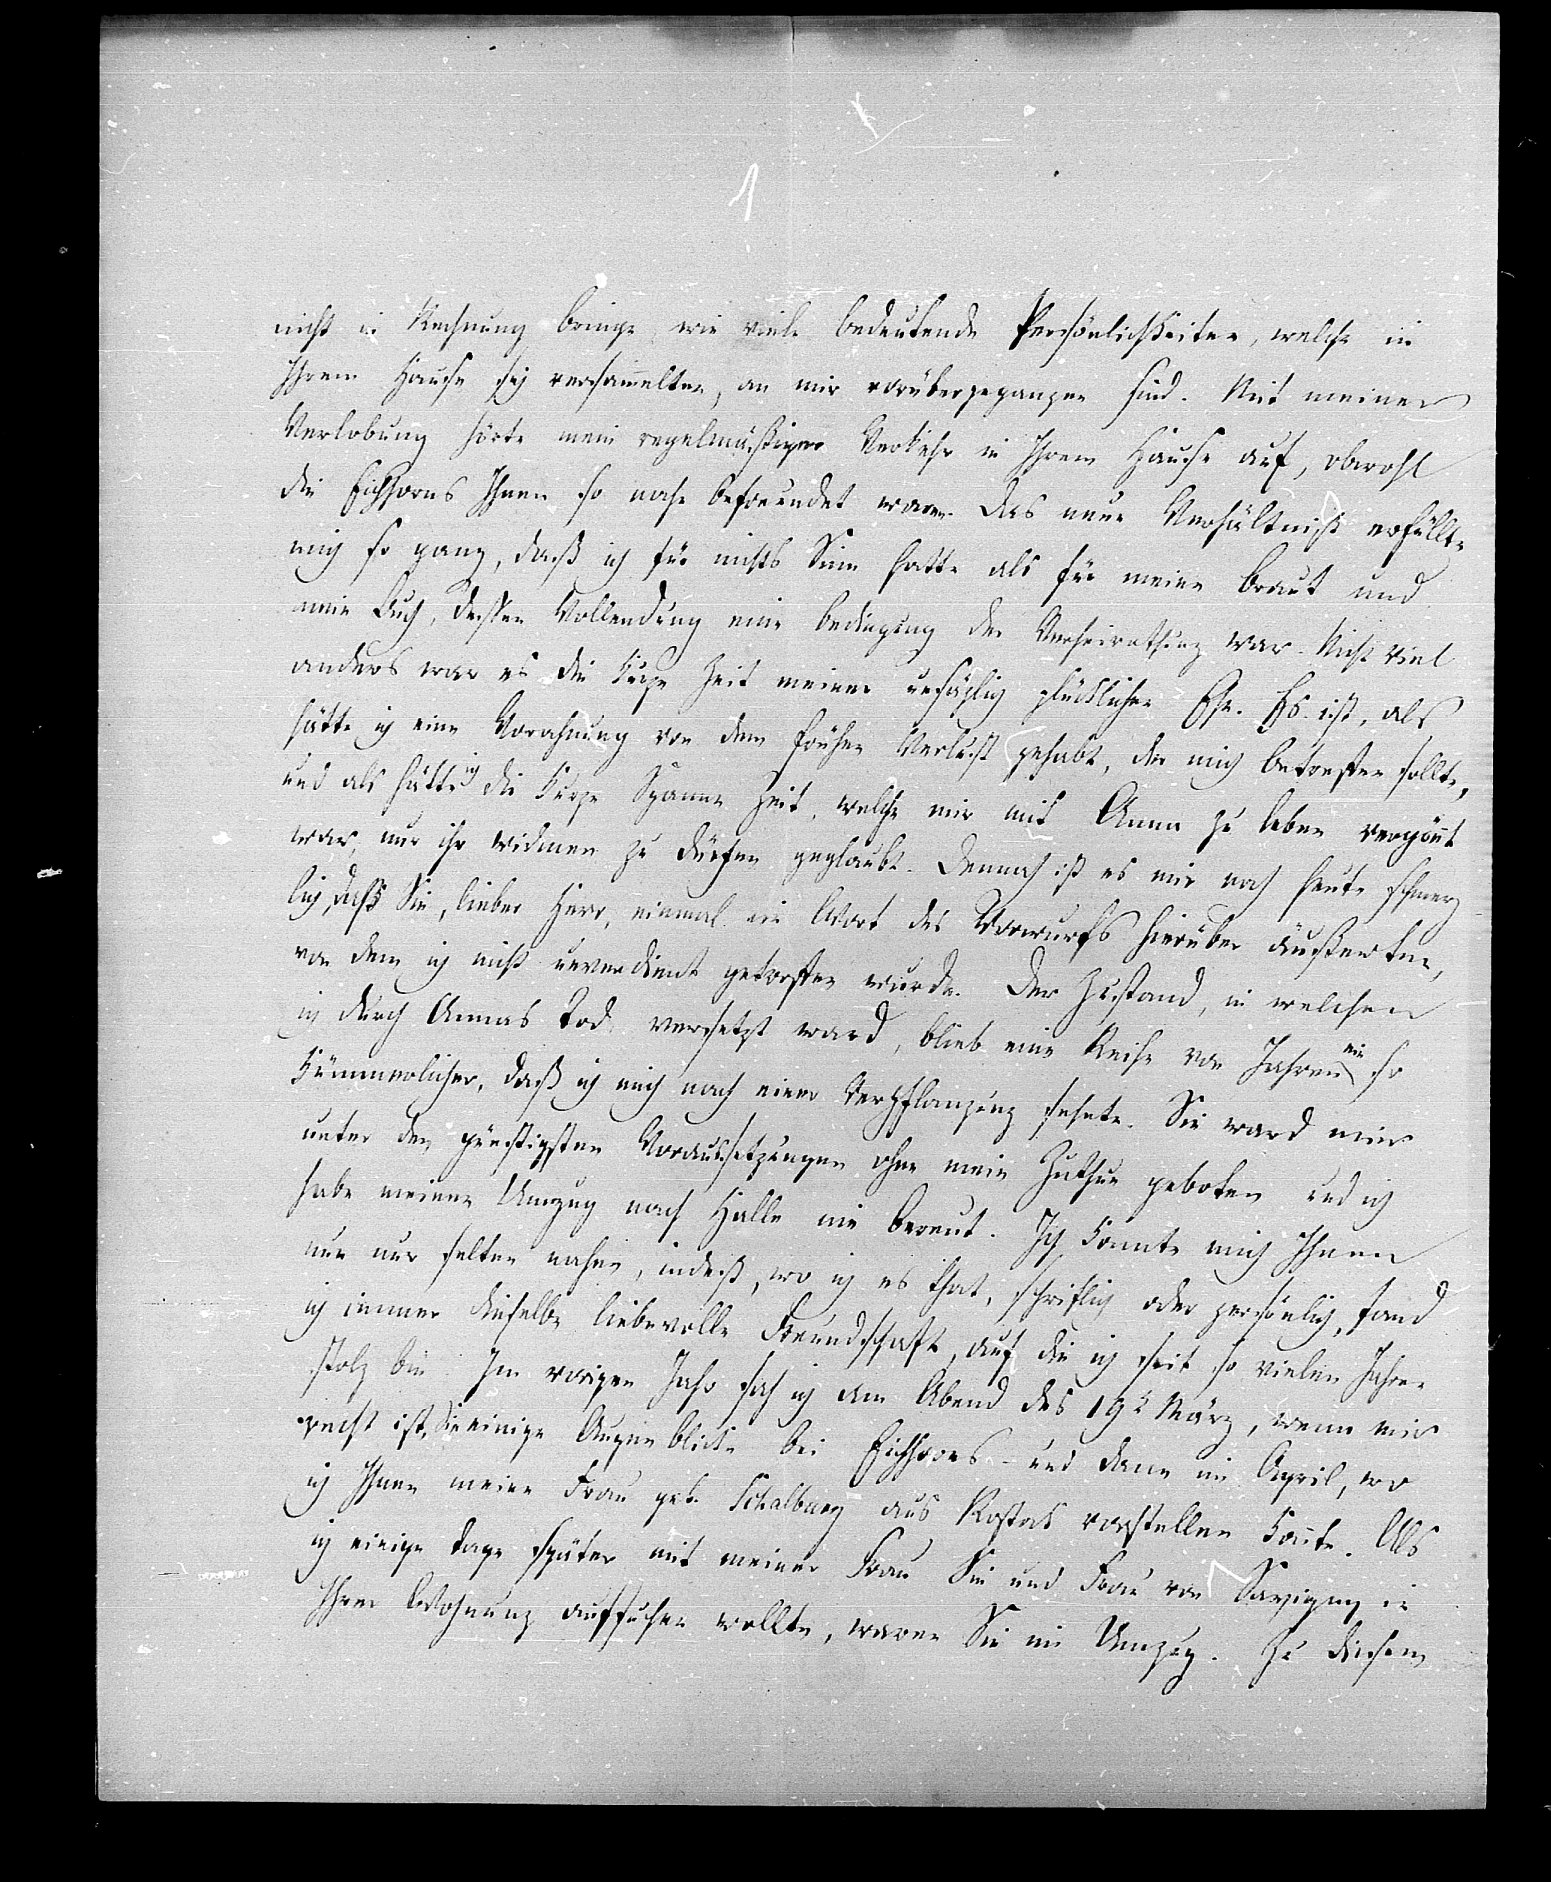 1
nicht in Rechnung bringe wie viele bedeutende Persönlichkeiten, welche in
Ihrem Hause sich versam̄elten, an mir vorübergegangen sind. Mit meiner
Verlobung hörte mein regelmäßiger Verkehr in Ihrem Hause auf, obwohl
die Eichhorns Ihnen so nahe befreundet waren. Das neue Verhältniß erfüllte
mich so ganz, daß ich für nichts Sinn hatte als für meine Braut und
mein Buch, dessen Vollendung eine Bedingung der Verheirathung war. Nicht viel
anders war es die kurze Zeit meiner unsäglich glücklichen Ehe. Es ist, als
hätte ich eine Vorahnung von dem frühen Verlust gehabt, der mich betreffen sollte,
und als hätte ich die kurze Spanne Zeit, welche mir mit Anna zu leben vergön̄t
war, nur ihr widmen zu dürfen geglaubt. Dennoch ist es mir noch heute schmerz-
lich, daß Sie, lieber Herr, einmal ein Wort des Vorwurfs hierüber äußerten,
von dem ich nicht unverdient getroffen wurde. Der Zustand, in welchen
ich durch Annas Tod versetzt ward, blieb eine Reihe von Jahren ein so
kümmerlicher, daß ich mich nach einer Verpflanzung sehnte. Sie ward mir
unter den günstigsten Voraussetzungen ohne mein Zuthun geboten und ich
habe meinen Umzug nach Halle nie bereut. Ich konnte mich Ihnen
nun nur selten nahen, indeß, wo ich es that, schriftlich oder persönlich, fand
ich immer dieselbe liebevolle Freundschaft, auf die ich seit so vielen Jahren
stolz bin. Im vorigen Jahr sah ich am Abend des 19t März, wenn mir
recht ist, Sie einige Augenblicke bei Eichhorns und dann im April, wo
ich Ihnen meine Frau geb. Schalburg aus Rostock vorstellen kon̄te. Als
ich einige Tage später mit meiner Frau Sie und Frau von Savigny in
Ihrer Wohnung aufsuchen wollte, waren Sie im Umzug. Zu diesem